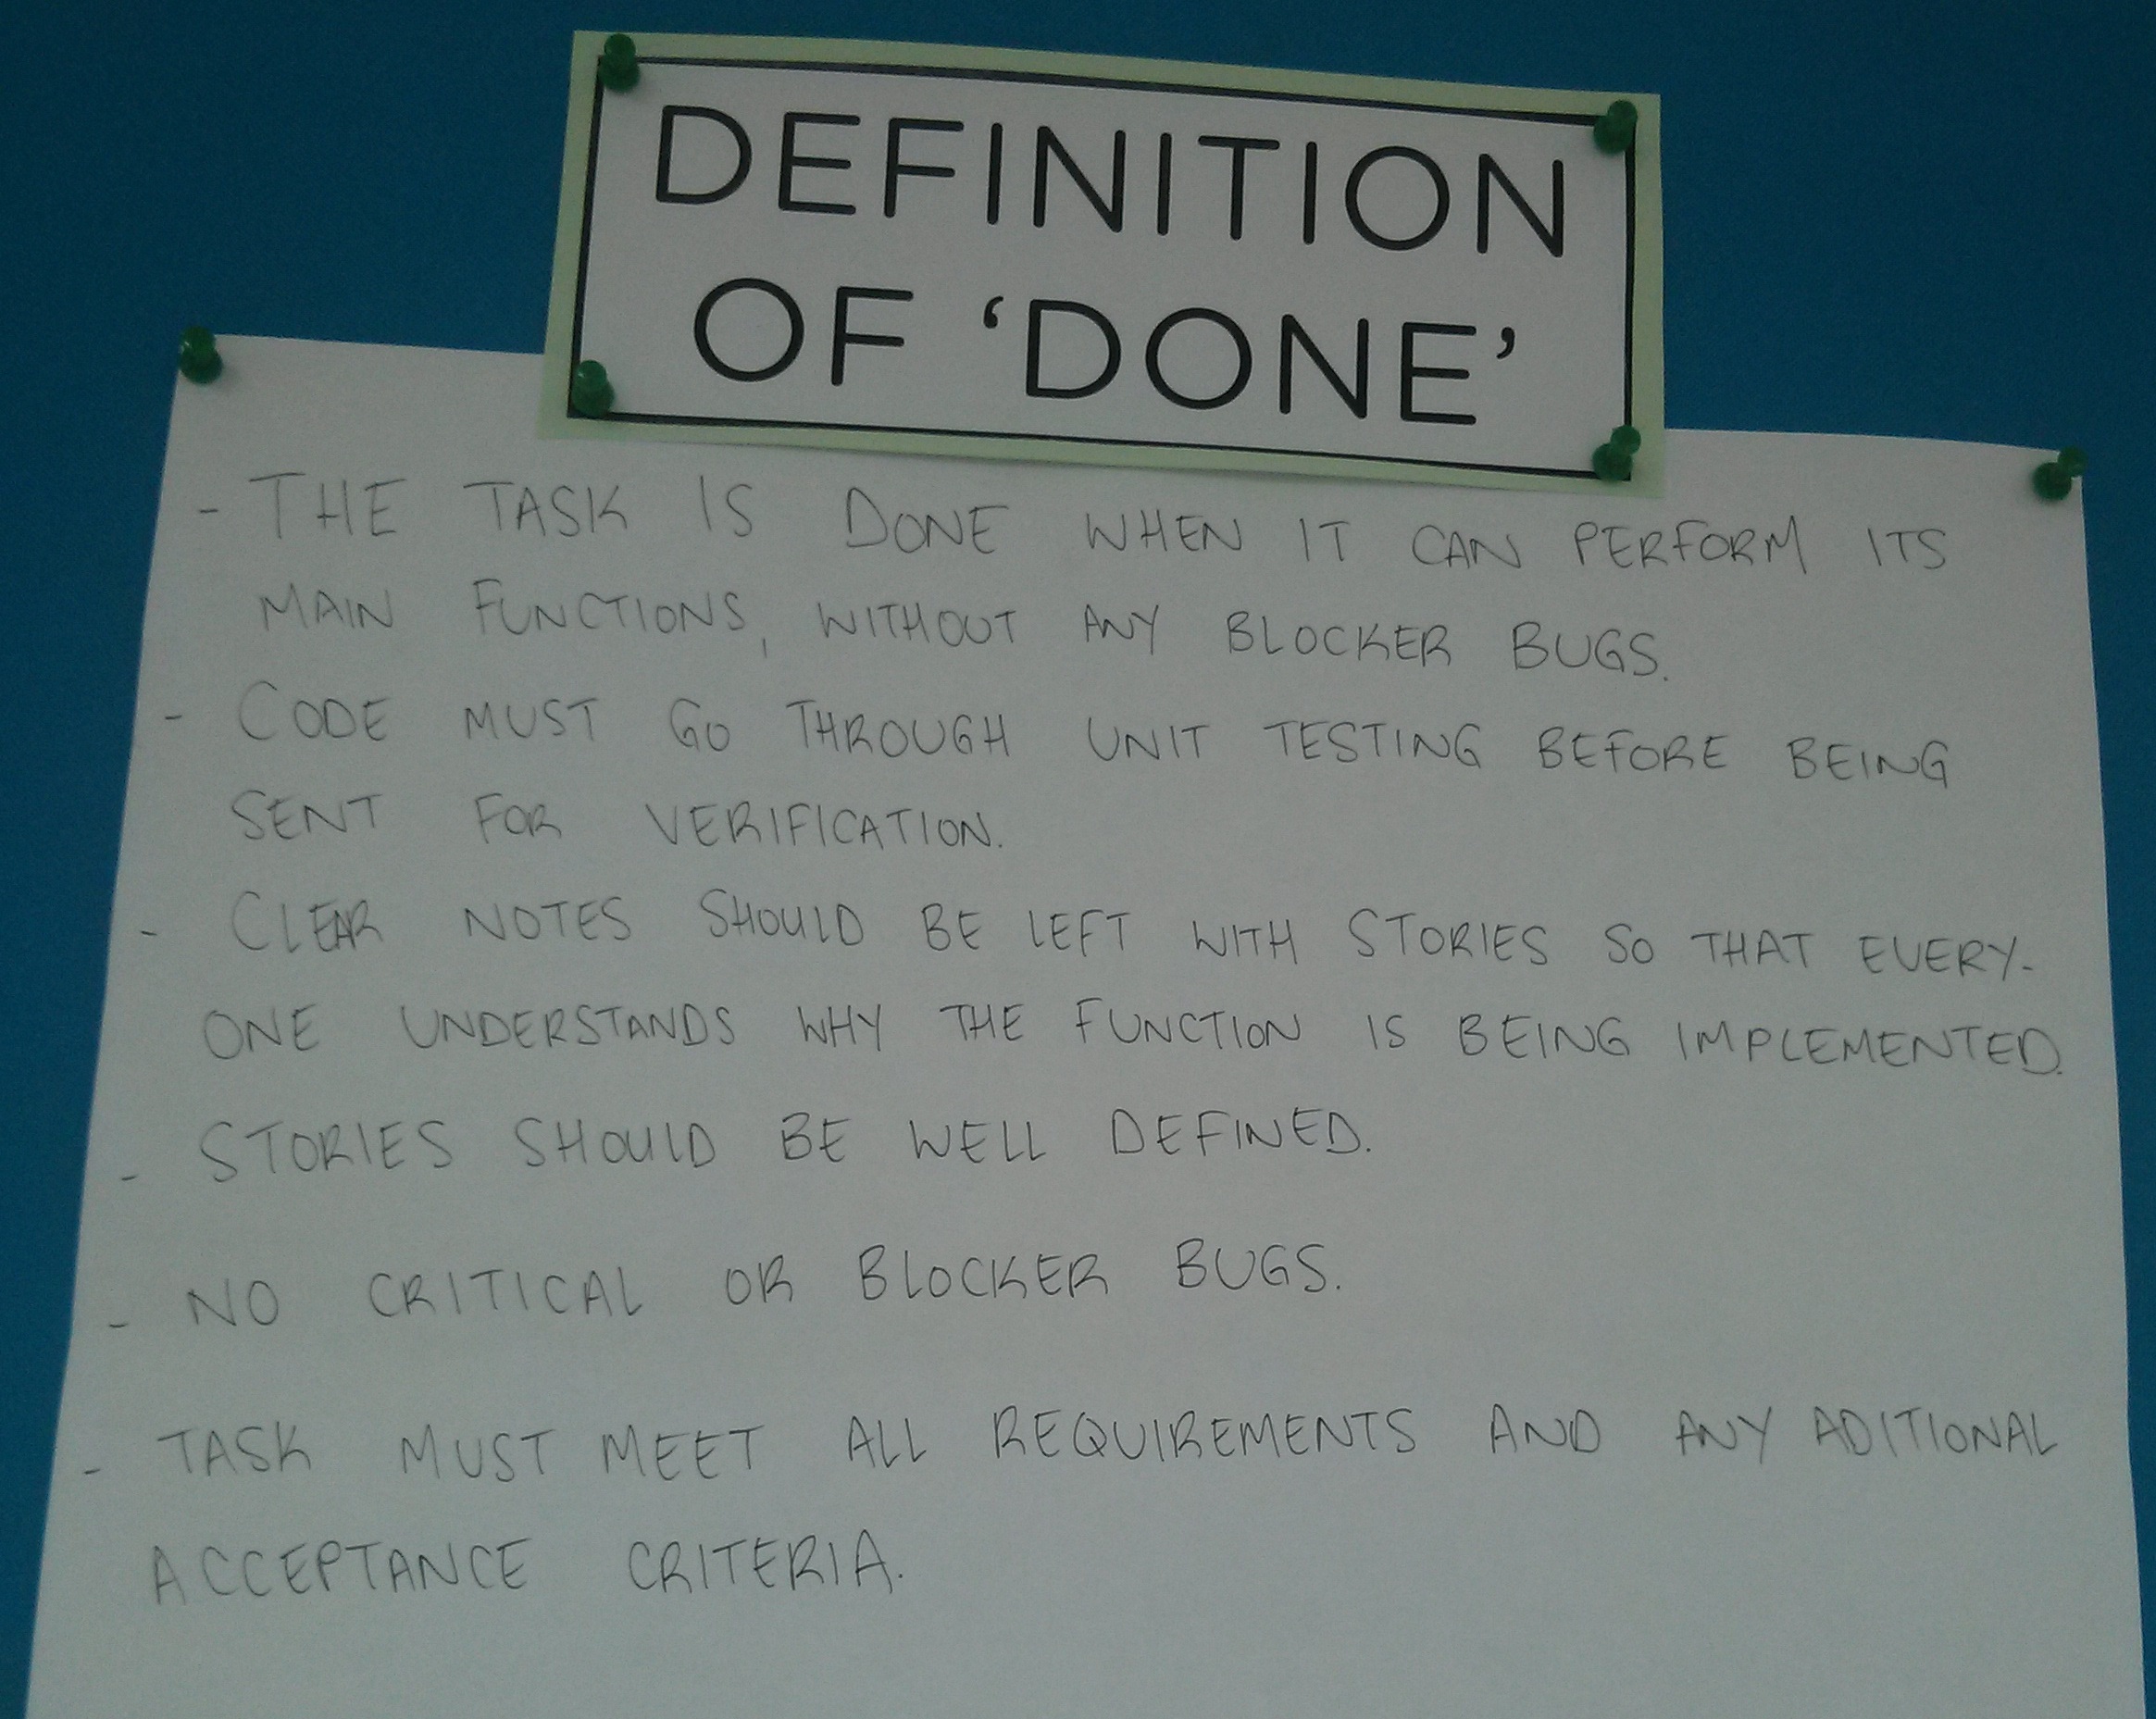 DEFINITION
OF ‘DONE’
- THE TASK IS DONE WHEN IT CAN PERFORM ITS
MAIN FUNCTIONS, WITHOUT ANY BLOCKER BUGS.
- CODE MUST GO THROUGH UNIT TESTING BEFORE BEING
SENT FOR VERIFICATION.
- CLEAR NOTES SHOULD BE LEFT WITH STORIES SO THAT EVERY-
ONE UNDERSTANDS WHY THE FUNCTION IS BEING IMPLEMENTED.
- STORIES SHOULD BE WELL DEFINED.
- NO CRITICAL OR BLOCKER BUGS.
- TASK MUST MEET ALL REQUIREMENTS AND ANY ADITIONAL
ACCEPTANCE CRITERIA.